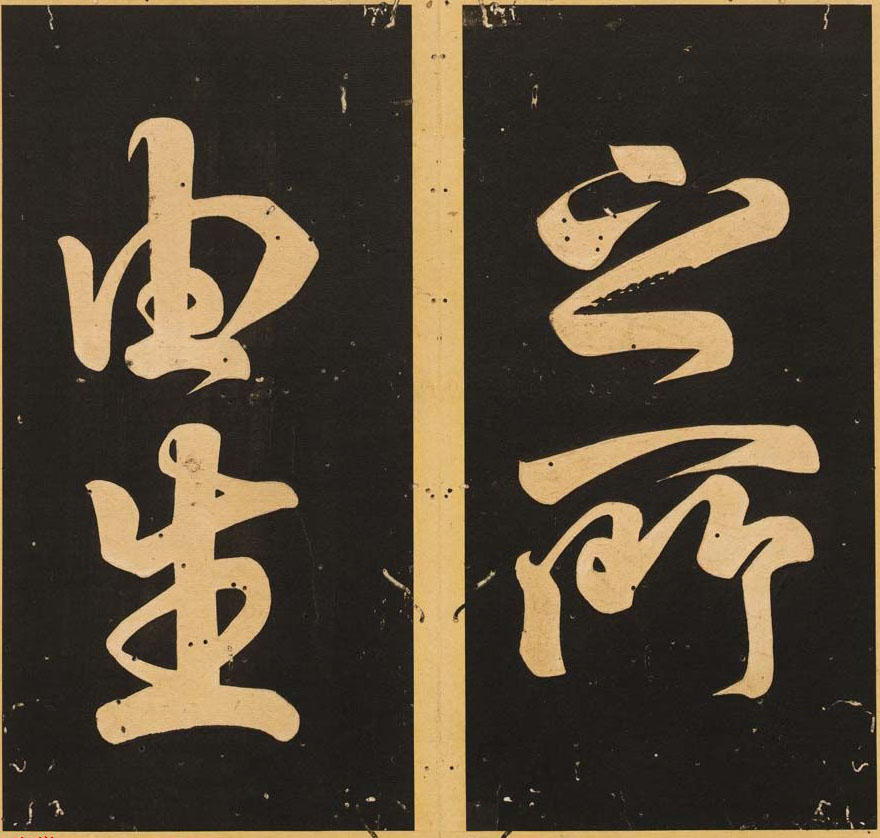 之所
由生